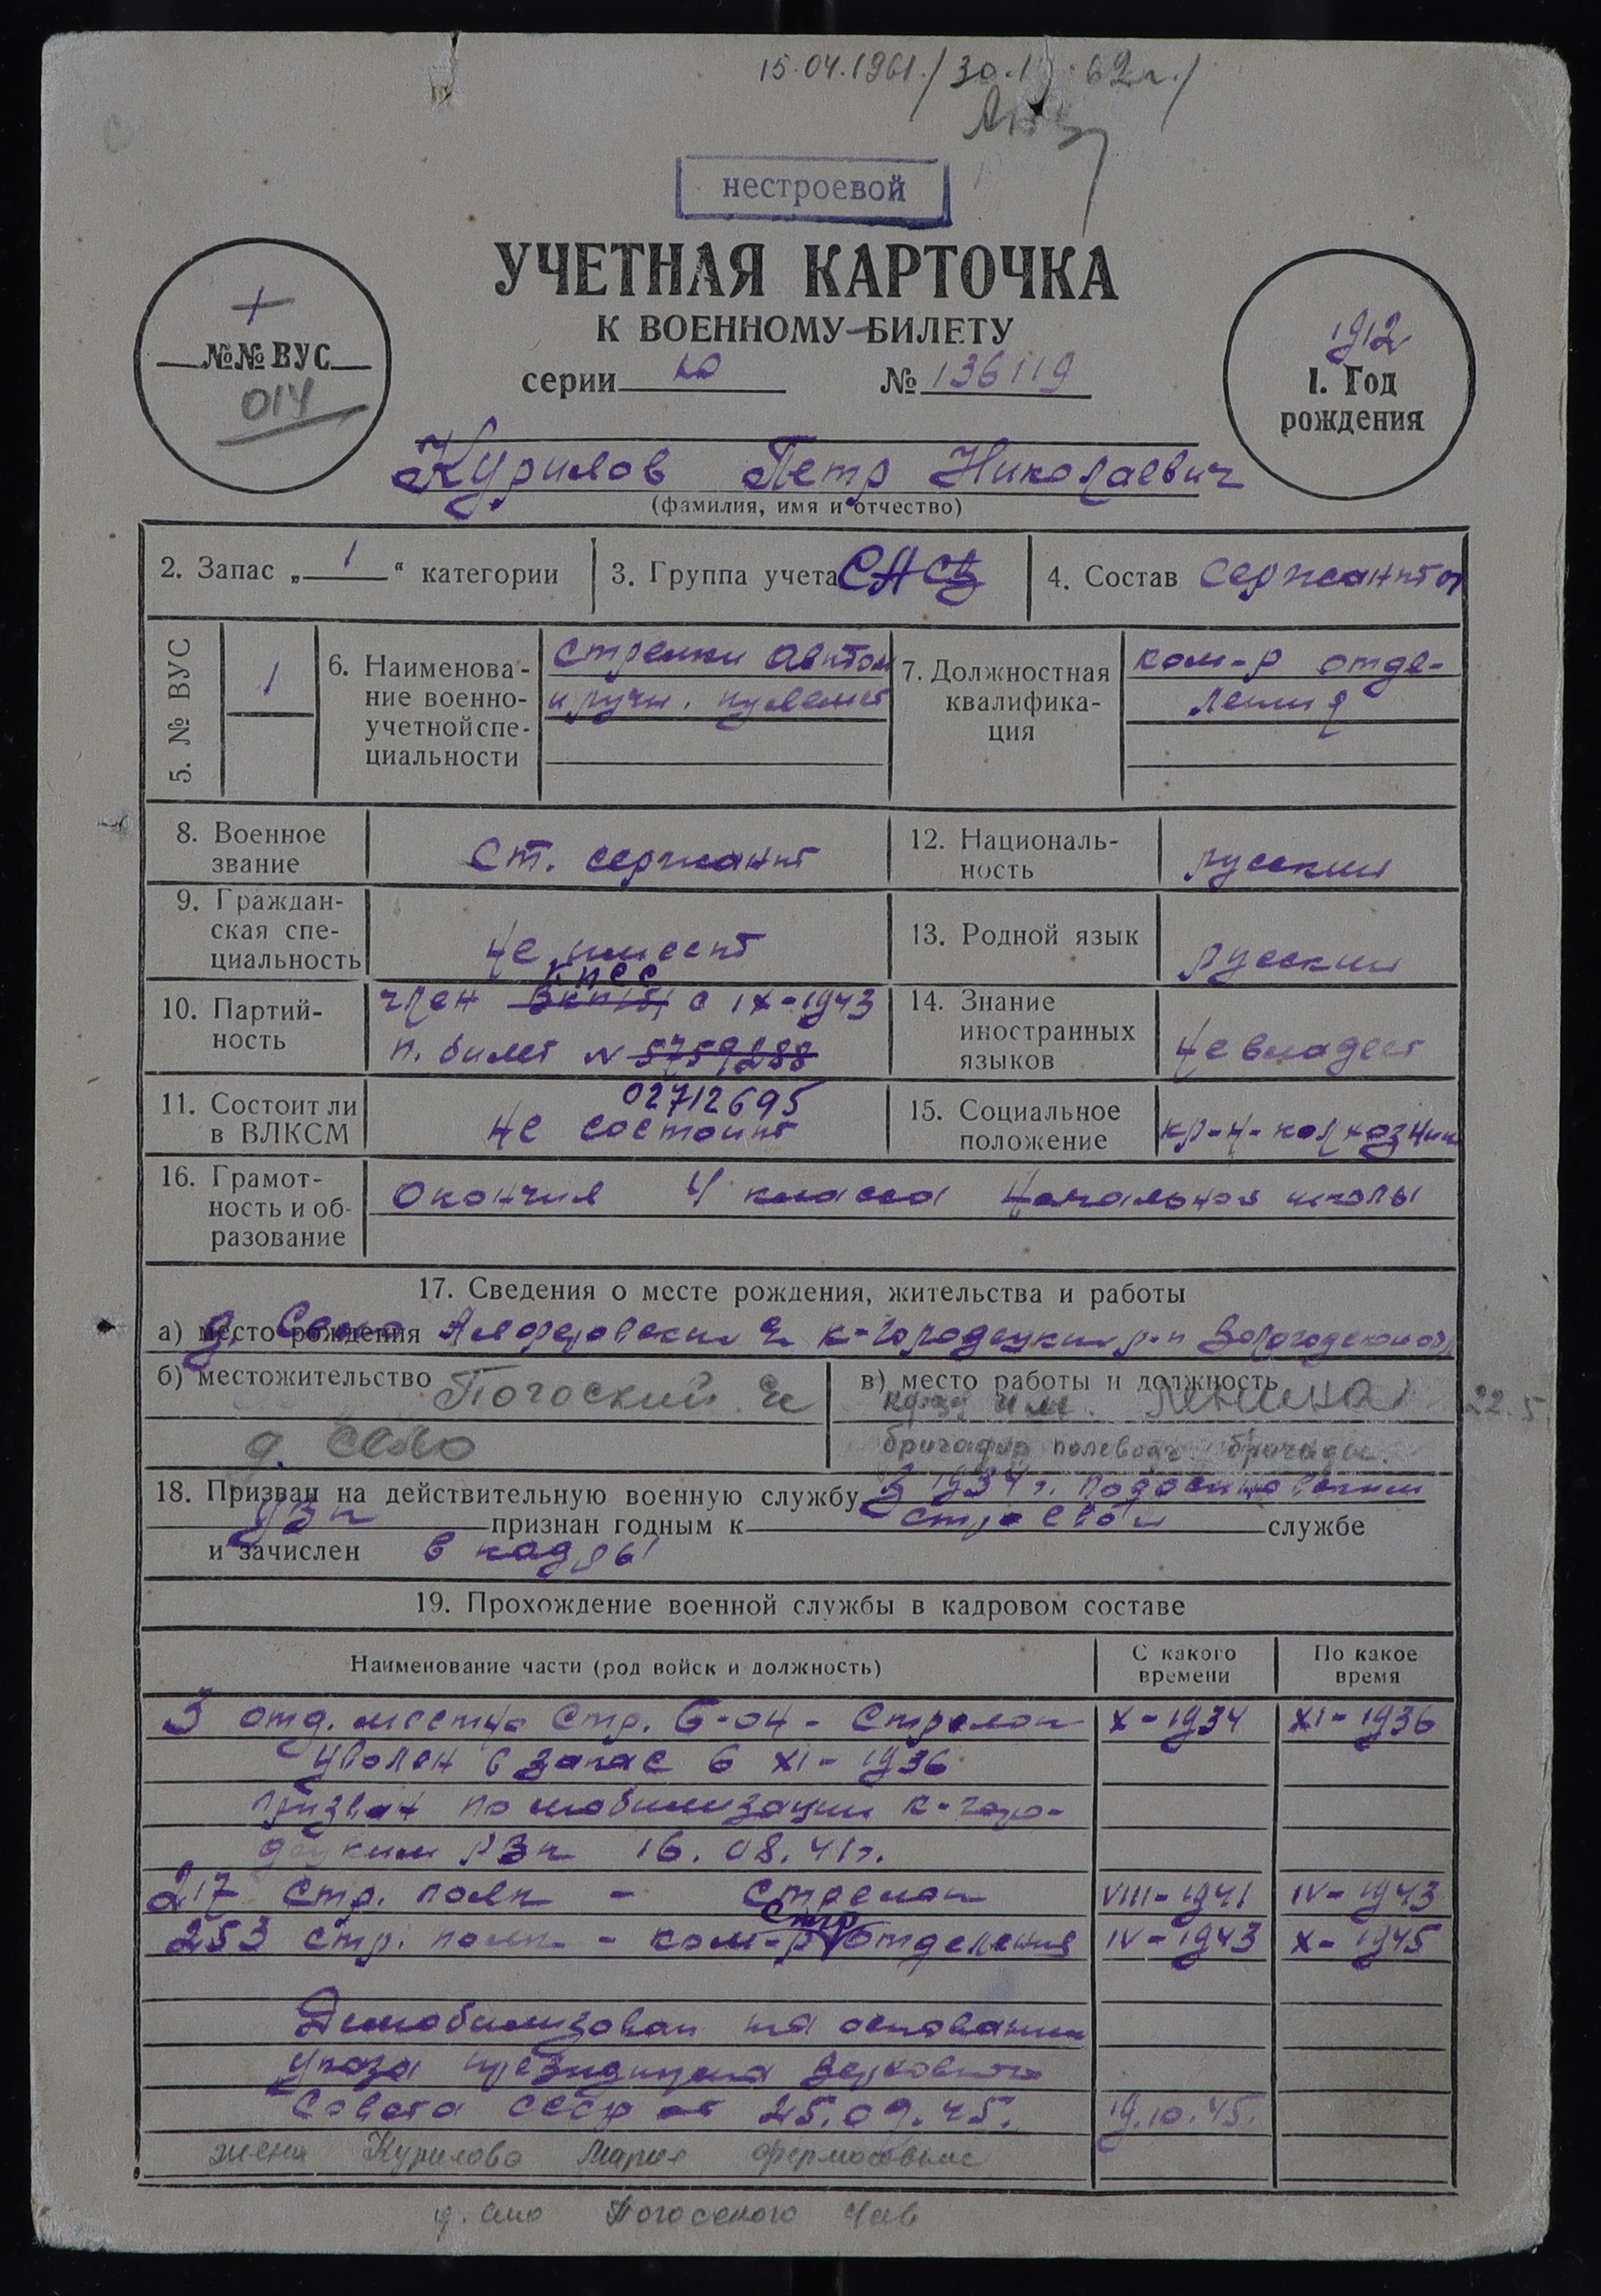 15.04.1961./
нестроевой
УЧЕТНАЯ КАРТОЧКА
К ВОЕННОМУ БИЛЕТУ
серии Ю № 136119
1
№№ ВУС
014
1912
1. Год
рождения
Курилов Петр Николаевич
(фамилия, имя и отчество)
2. Запас „ 1 “ категории
3. Группа учета СА
4. Состав сержантов
5. № ВУС
1
6. Наименова-
ние военно-
учетной спе-
циальности
стрелки автом
и ручн. пулемет
7. Должностная
квалифика-
ция
ком-р отде-
ления
8. Военное
звание
ст. сержант
12. Националь-
ность
русский
9. Граждан-
ская спе-
циальность
не имеет
13. Родной язык
русский
10. Партий-
ность
КПСС
член ВКП(б) с IX-1943
п. билет № 5759288
02712695
14. Знание
иностранных
языков
не владеет
11. Состоит ли
в ВЛКСМ
не состоит
15. Социальное
положение
кр-н-колхозник
16. Грамот-
ность и об-
разование
Окончил 4 класса начальной школы
17. Сведения о месте рождения, жительства и работы
а) место рождения д. Село с к-городецкий р-н Вологодской обл
б) местожительство Погоский с
д. Село
в) место работы и должность
к-з им. Ленина
22.5
бригадир полеводч. бригады.
18. Призван на действительную военную службу в 1934 г.
признан годным к строевой службе
и зачислен в кадры
19. Прохождение военной службы в кадровом составе
Наименование части (род войск и должность)
С какого
времени
По какое
время
3 отд. местн. стр. б-он - Стрелок X-1934 XI-1936
уволен в запас в XI-1936
призван по мобилизации к-горо-
децким РВК 16.08.41г.
217 стр. полк - стрелок VIII-1941 IV-1943
стр
253 стр. полк - ком-р отделения IV-1943 X-1945
Демобилизован на основании
указа президиума Верховного
Совета СССР от 25.09.45. 19.10.45.
жена Курилова Мария
д. Село Погоского